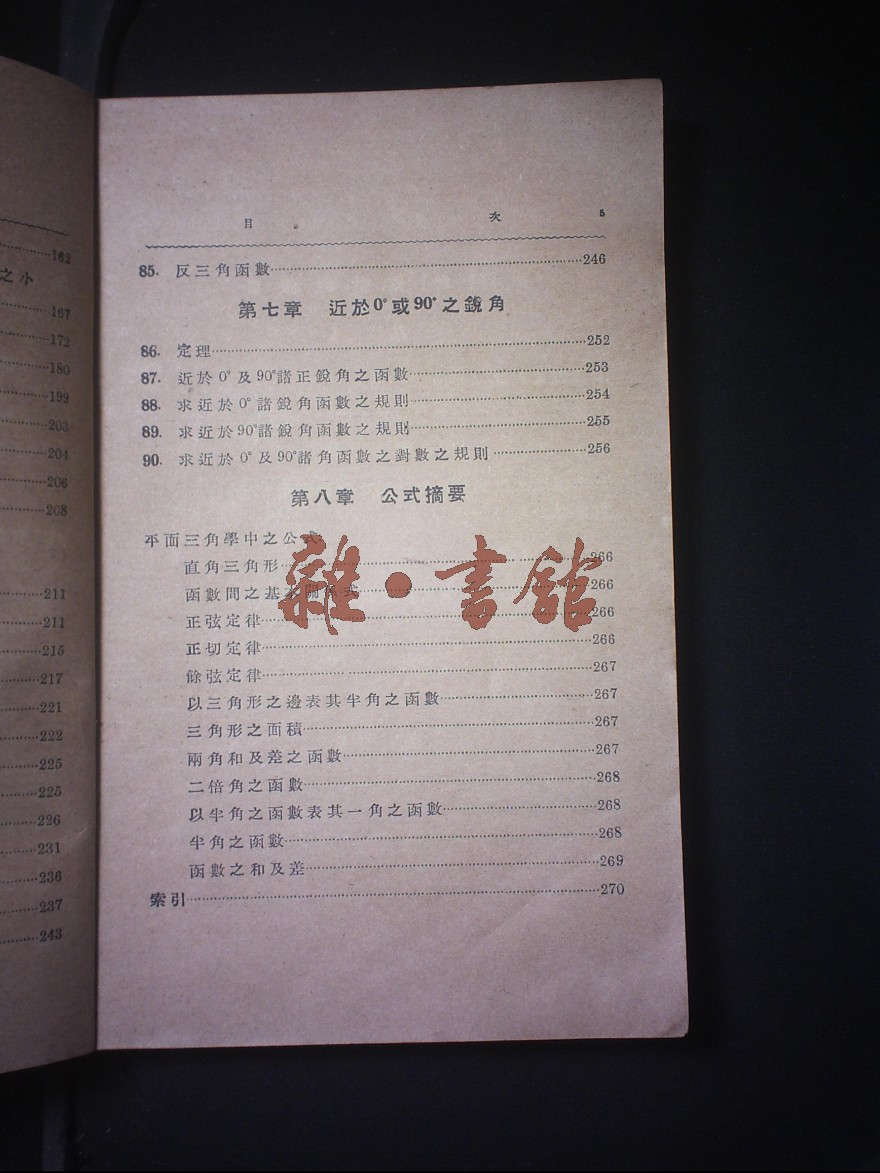 162
之小
167
172
180
199
203
204
206
208
211
211
215
217
221
222
225
225
226
231
236
237
243
目 次 5
85. 反三角函數……246
第七章 近於0°或90°之銳角
86. 定理……252
87. 近於0°及90°諸正銳角之函數……253
88. 求近於0°諸銳角函數之規則……254
89. 求近於90°諸銳角函數之規則……255
90. 求近於0°及90°諸角函數之對數之規則……256
第八章 公式摘要
平面三角學中之公式
直角三角形……266
函數間之基本關係式……266
正弦定律……266
正切定律……266
餘弦定律……267
以三角形之邊表其半角之函數……267
三角形之面積……267
兩角和及差之函數……267
二倍角之函數……268
以半角之函數表其一角之函數……268
半角之函數……268
函數之和及差……269
索引……270
雜·書館